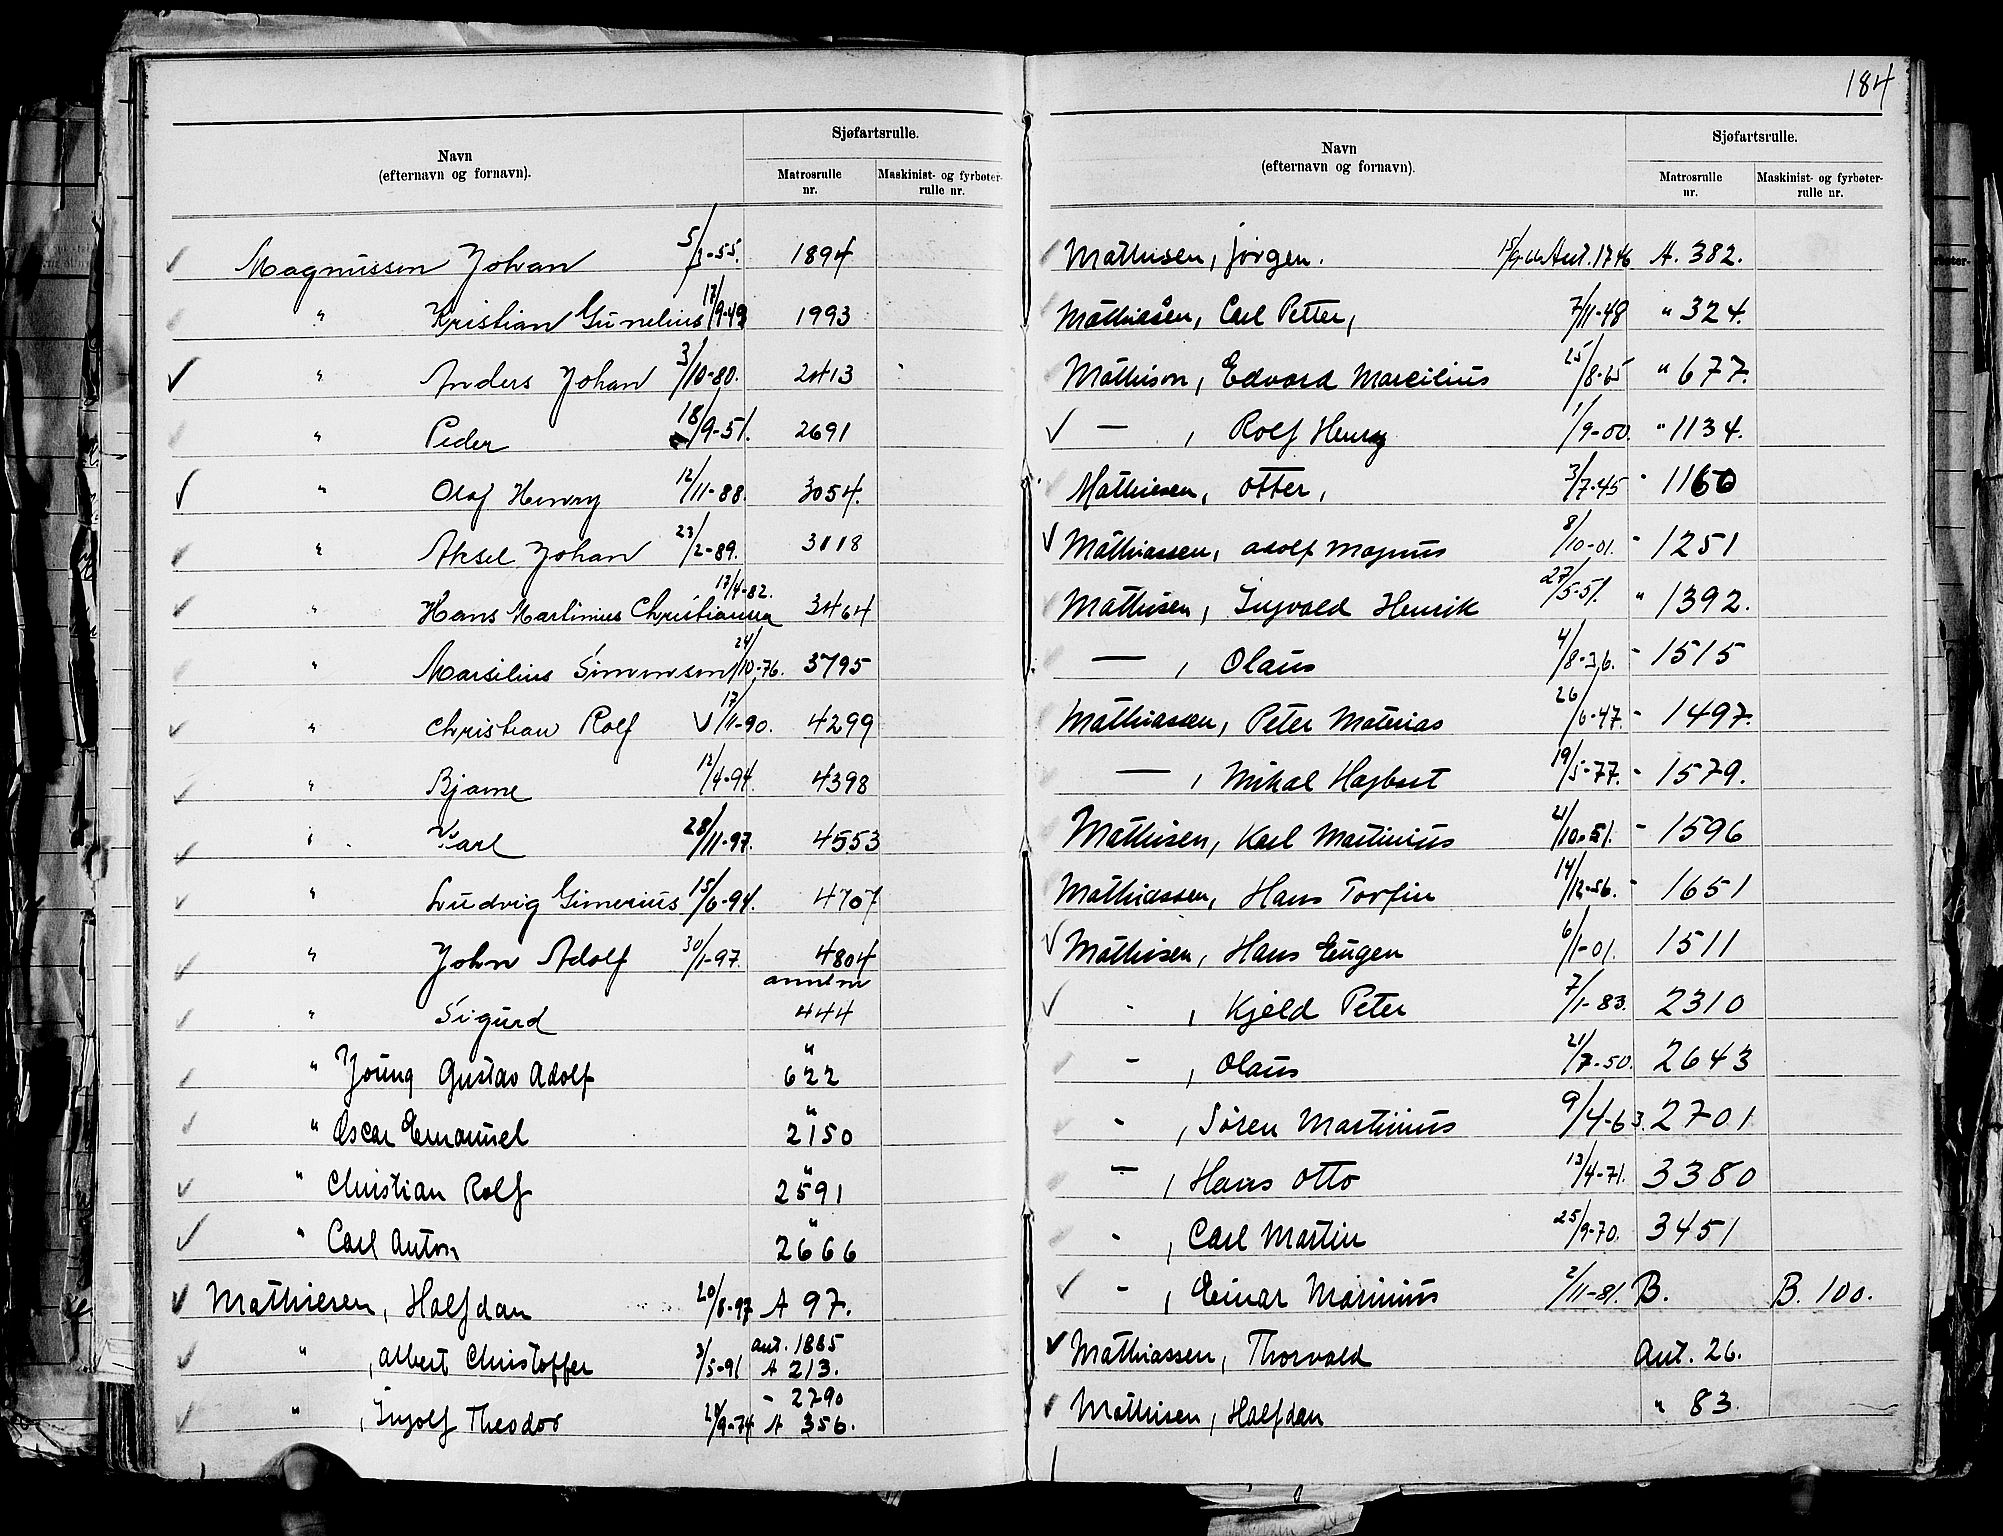 Navn
(efternavn og fornavn).
Sjøfartsrulle.
Matrosrulle nr.
Maskinist- og fyrbøter-rulle nr.
Magnussen Johan 5/3-55. 1894
" Kristian Gunelius 17/9-49 1993
" Anders Johan 3/10-80. 2413
" Peder 18/9-51. 2691
" Olaf Henry 12/11-88. 3054.
" Aksel Johan 23/2-89. 3118
" Hans Martinius Christiansen 17/4-82. 3464
" Marsilius Simonsen 24/10-76. 3795
" Christian Rolf 17/11-90. 4299
" Bjarne 12/4-94. 4398
" Karl 28/11-97. 4553
" Ludvig Gimerius 15/6-94. 4707
" John Adolf 30/1-97. 4804
annt nr
" Sigurd 444
" Young Gustav Adolf " 622
" Oscar Emanuel " 2150
" Christian Rolf " 2591
" Carl Anton " 2666
Mathiesen, Halfdan 20/8-97 A 97.
ant. 1885
" , Albert Christoffer 3/5-91 A 213.
- 2790
" , Ingolf Theodor 28/9-74 A 356.
184
Navn
(efternavn og fornavn).
Sjøfartsrulle.
Matrosrulle nr.
Maskinist- og fyrbøter-rulle nr.
Mathisen, Jørgen. Ant. 1746 A. 382.
Mathiasen, Carl Petter, 7/11-48 " 324.
Mathison, Edvard Marcilius 25/8-65 " 677.
— , Rolf Henry 1/9-00. " 1134.
Mathiesen, Otter, 3/7-45 - 1160
Mathiassen, Adolf Magnus 8/10-01. - 1251
Mathisen, Ingvald Henrik 27/5-51. " 1392.
— , Olaus 4/8-36. - 1515
Mathiassen, Peter Matias 26/6-47. - 1497.
— , Mikal Hagbart 19/5-77. - 1579.
Mathisen, Karl Martinius 21/10-51. - 1596
Mathiassen, Hans Torfin 14/12-56. - 1651
Mathisen, Hans Eugen 6/1-01. 1511
- , Kjeld Peter 7/1-83. 2310
- , Olaus 21/7-50. 2643
- , Søren Martinius 9/4-63. 2701
- , Hans Otto 13/4-71. 3380
- , Carl Martin 25/9-70. 3451
- , Einar Marinius 2/11-81. B. B. 100.
Mathiassen, Thorvald Ant. 26.
Mathisen, Halfdan " 83.